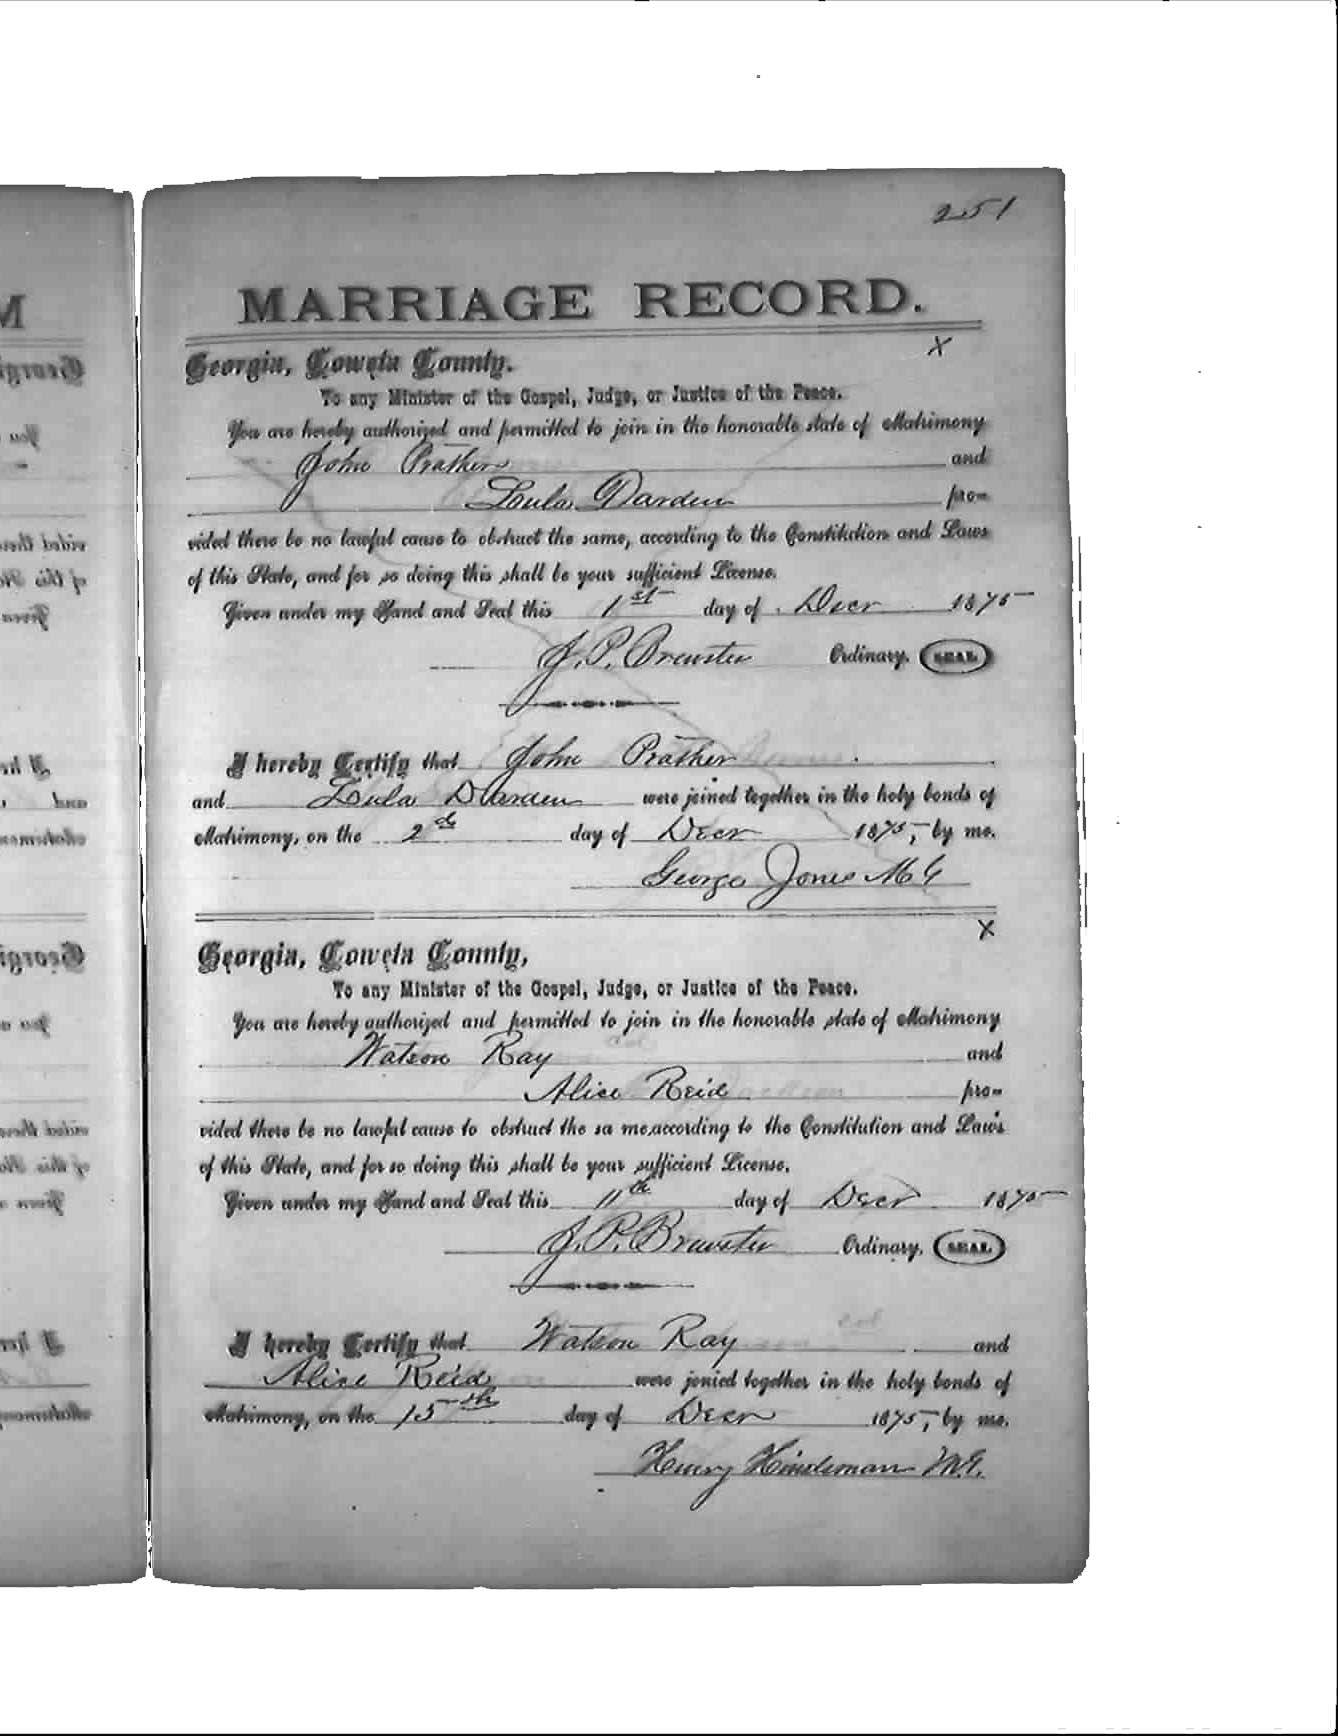 251
MARRIAGE RECORD.
X
Georgia, Coweta County.
To any Minister of the Gospel, Judge, or Justice of the Peace.
You are hereby authorized and permitted to join in the honorable state of Matrimony
John Prather and
Lula Darden pro-
vided there be no lawful cause to obstruct the same, according to the Constitution and Laws
of this State, and for so doing this shall be your sufficient License.
Given under my Hand and Seal this 1st day of Decr 1875
J. P. Brewster Ordinary. SEAL
I hereby Certify that John Prather
and Lula Darden were joined together in the holy bonds of
Matrimony, on the 2d day of Decr 1875, by me.
George Jones M G
X
Georgia, Coweta County,
To any Minister of the Gospel, Judge, or Justice of the Peace.
You are hereby authorized and permitted to join in the honorable state of Matrimony
Watson Ray and
Alice Reid pro-
vided there be no lawful cause to obstruct the sa me,according to the Constitution and Laws
of this State, and for so doing this shall be your sufficient License.
Given under my Hand and Seal this 11th day of Decr 1875
J. P. Brewster Ordinary. SEAL
I hereby Certify that Watson Ray and
Alice Reid were jonied together in the holy bonds of
Matrimony, on the 15th day of Decr 1875, by me.
Henry Hindsman M.G.